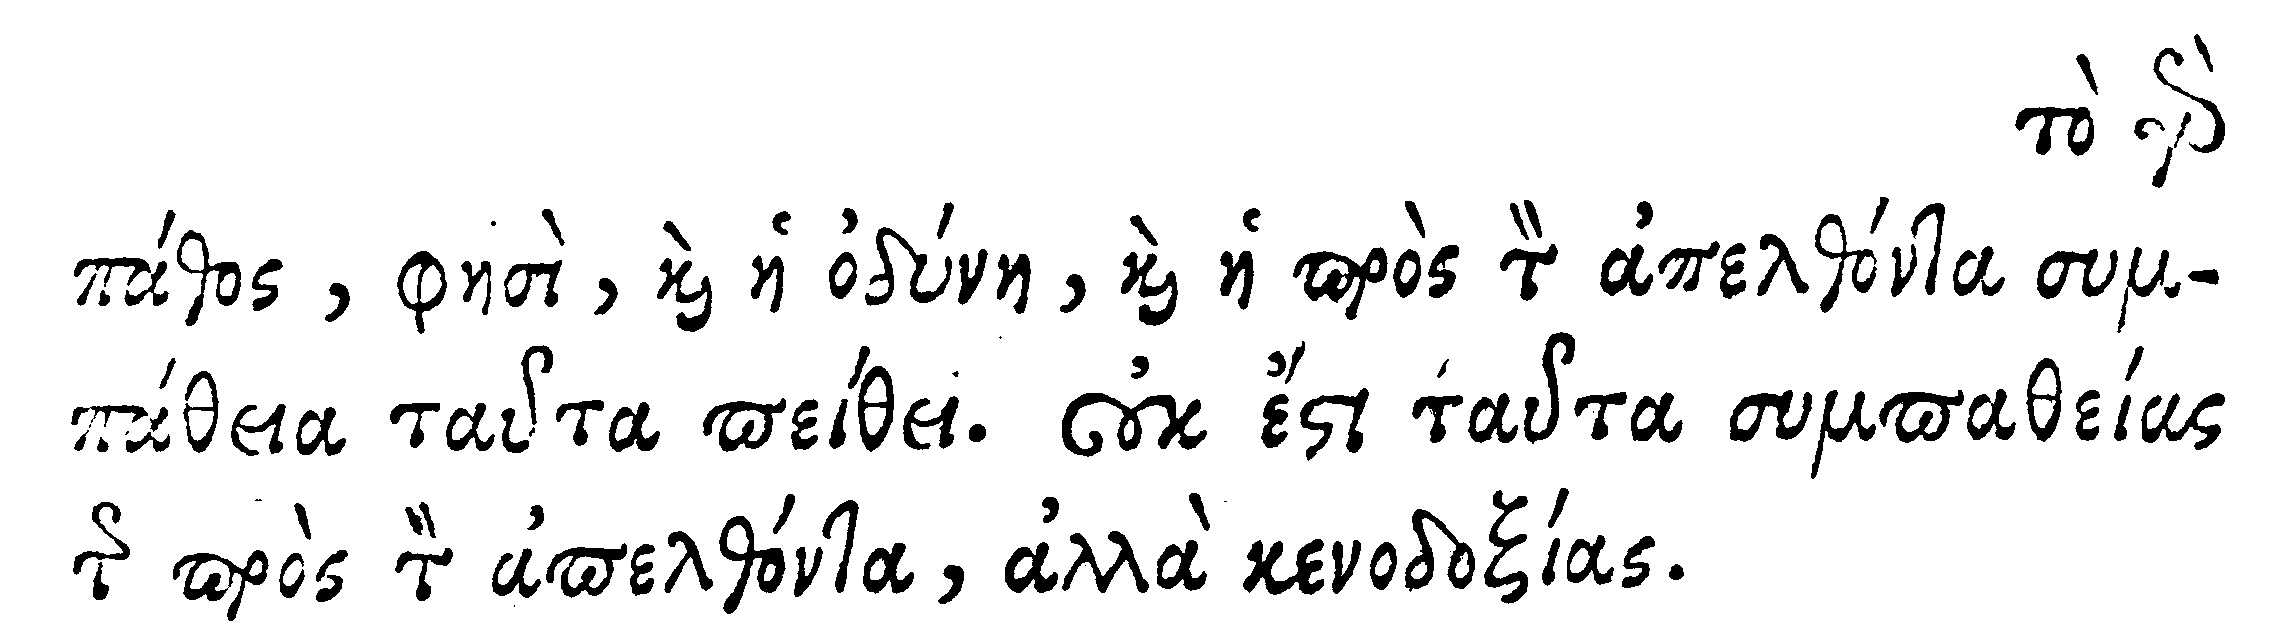 τὸ γὰρ
πάθος, φησὶ, καὶ ἡ ὀδύνη, καὶ ἡ πρὸς τὸν ἀπελθόντα συμ-
πάθεια ταῦτα πείθει. Οὐκ ἔστι ταῦτα συμπαθείας
τῆς πρὸς τὸν ἀπελθόντα, ἀλλὰ κενοδοξίας.